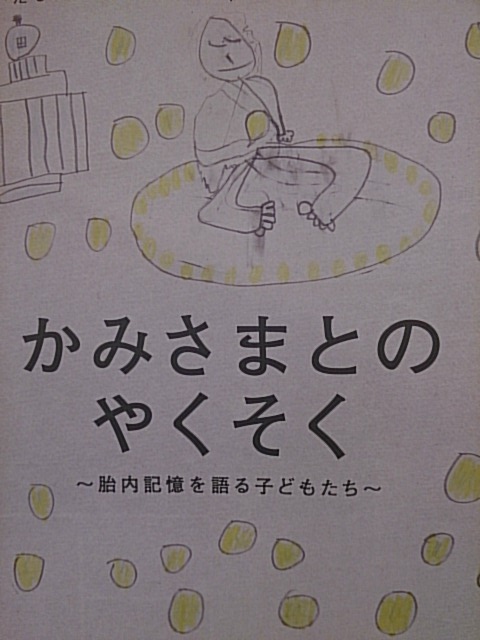 かみさまとの
やくそく
～胎内記憶を語る子どもたち～